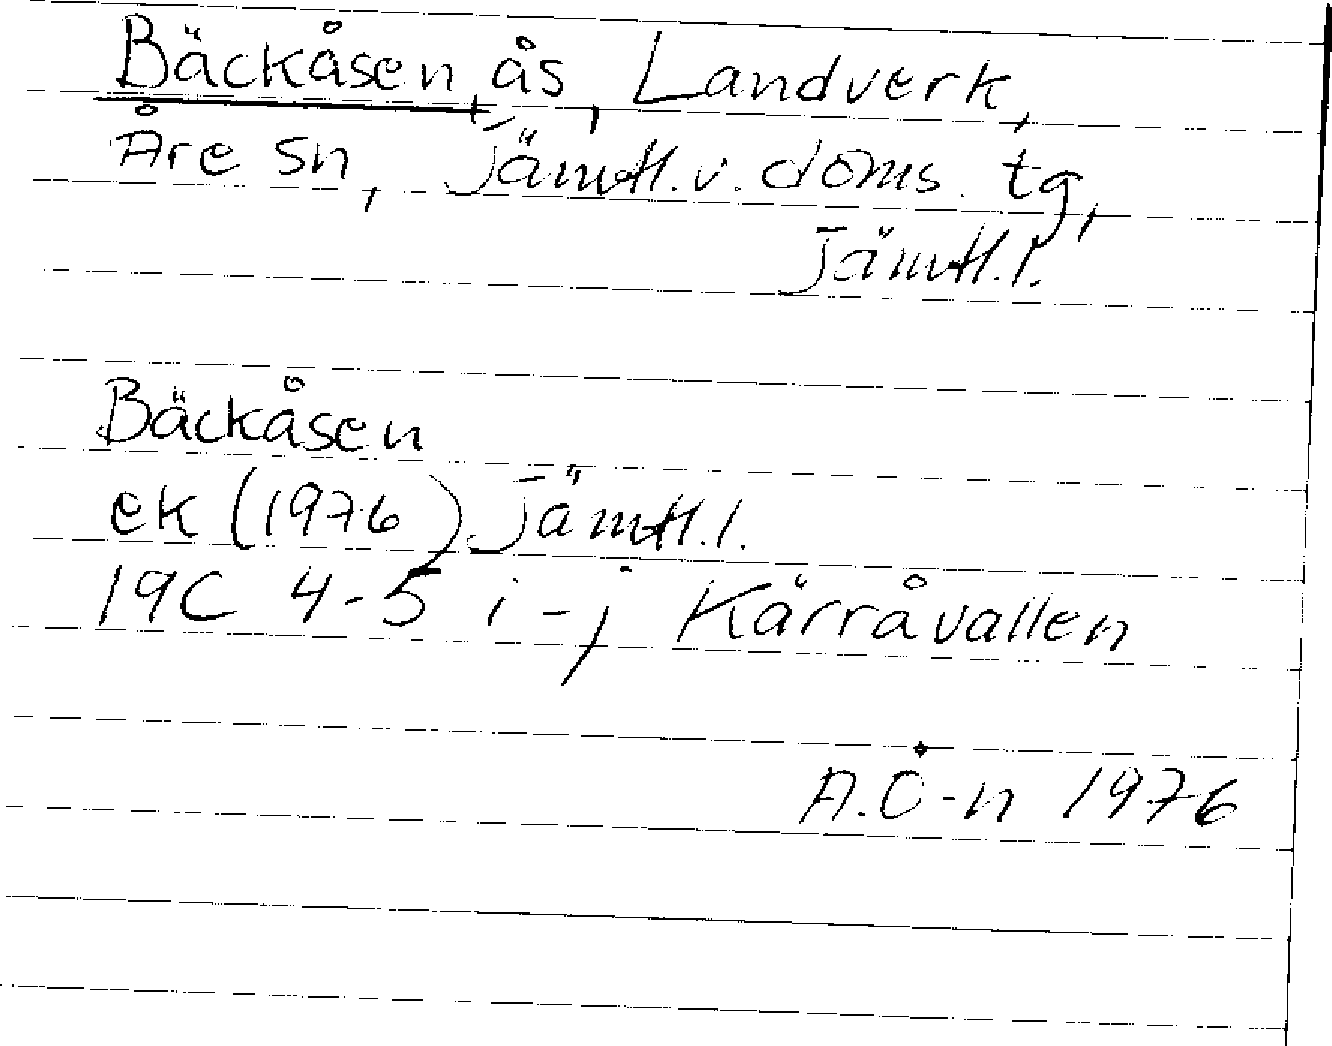 Bäckåsen, ås, Landverk,
Åre sn, Jämtl. v. doms. tg,
Jämtl. l.
Bäckåsen
ek (1976) Jämtl. l.
19C 4-5 i-j Kärråvallen
A.Ö-n 1976